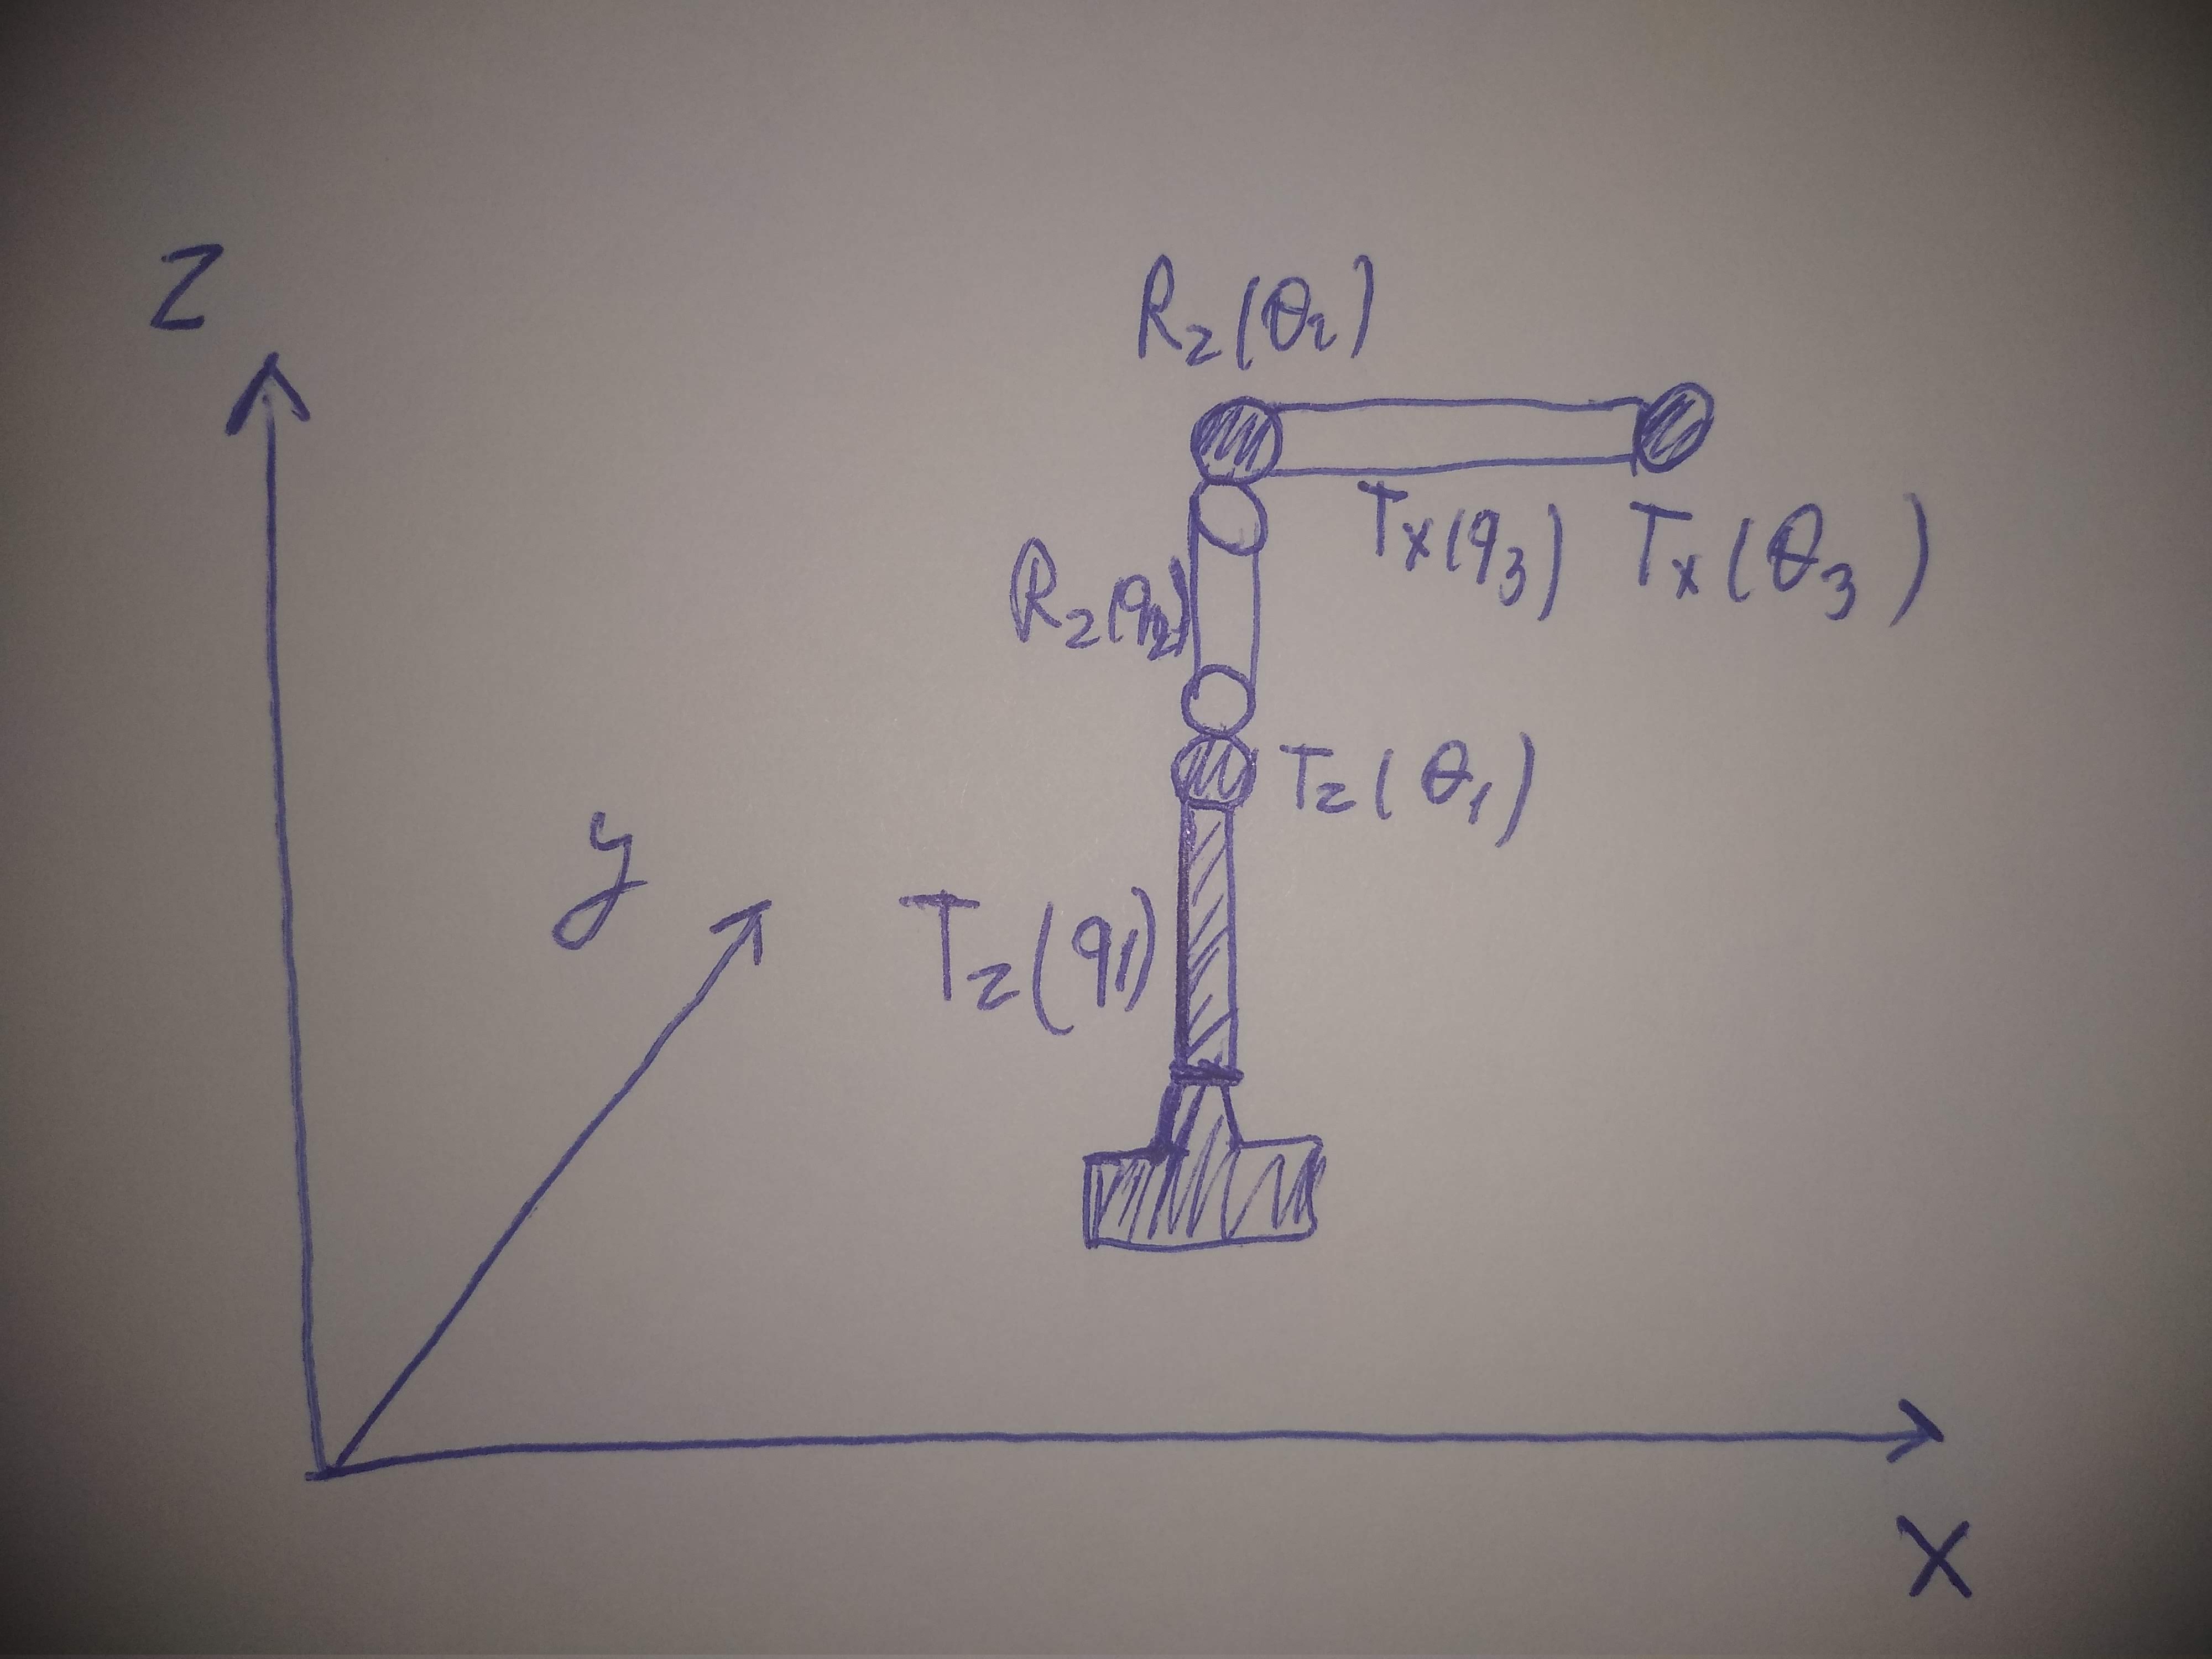 Z
R₂(θ₂)
Tx(q₃) Tx(θ₃)
R₂(q₂)
Tz(θ₁)
y
Tz(q1)
X